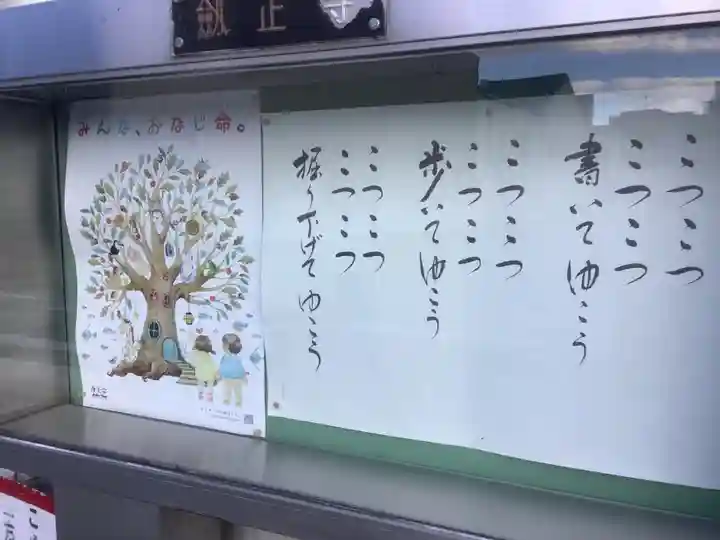 正
みんな、おなじ命。
こつこつ
こつこつ
書いてゆこう
こつこつ
こつこつ
歩いてゆこう
こつこつ
こつこつ
掘り下げてゆこう